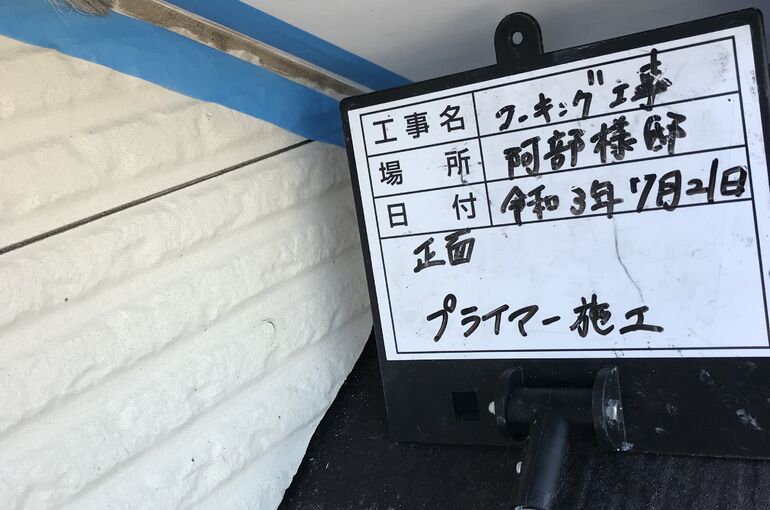 工事名 コーキング工事
場所 阿部様邸
日付 令和3年7月21日
正面
プライマー施工